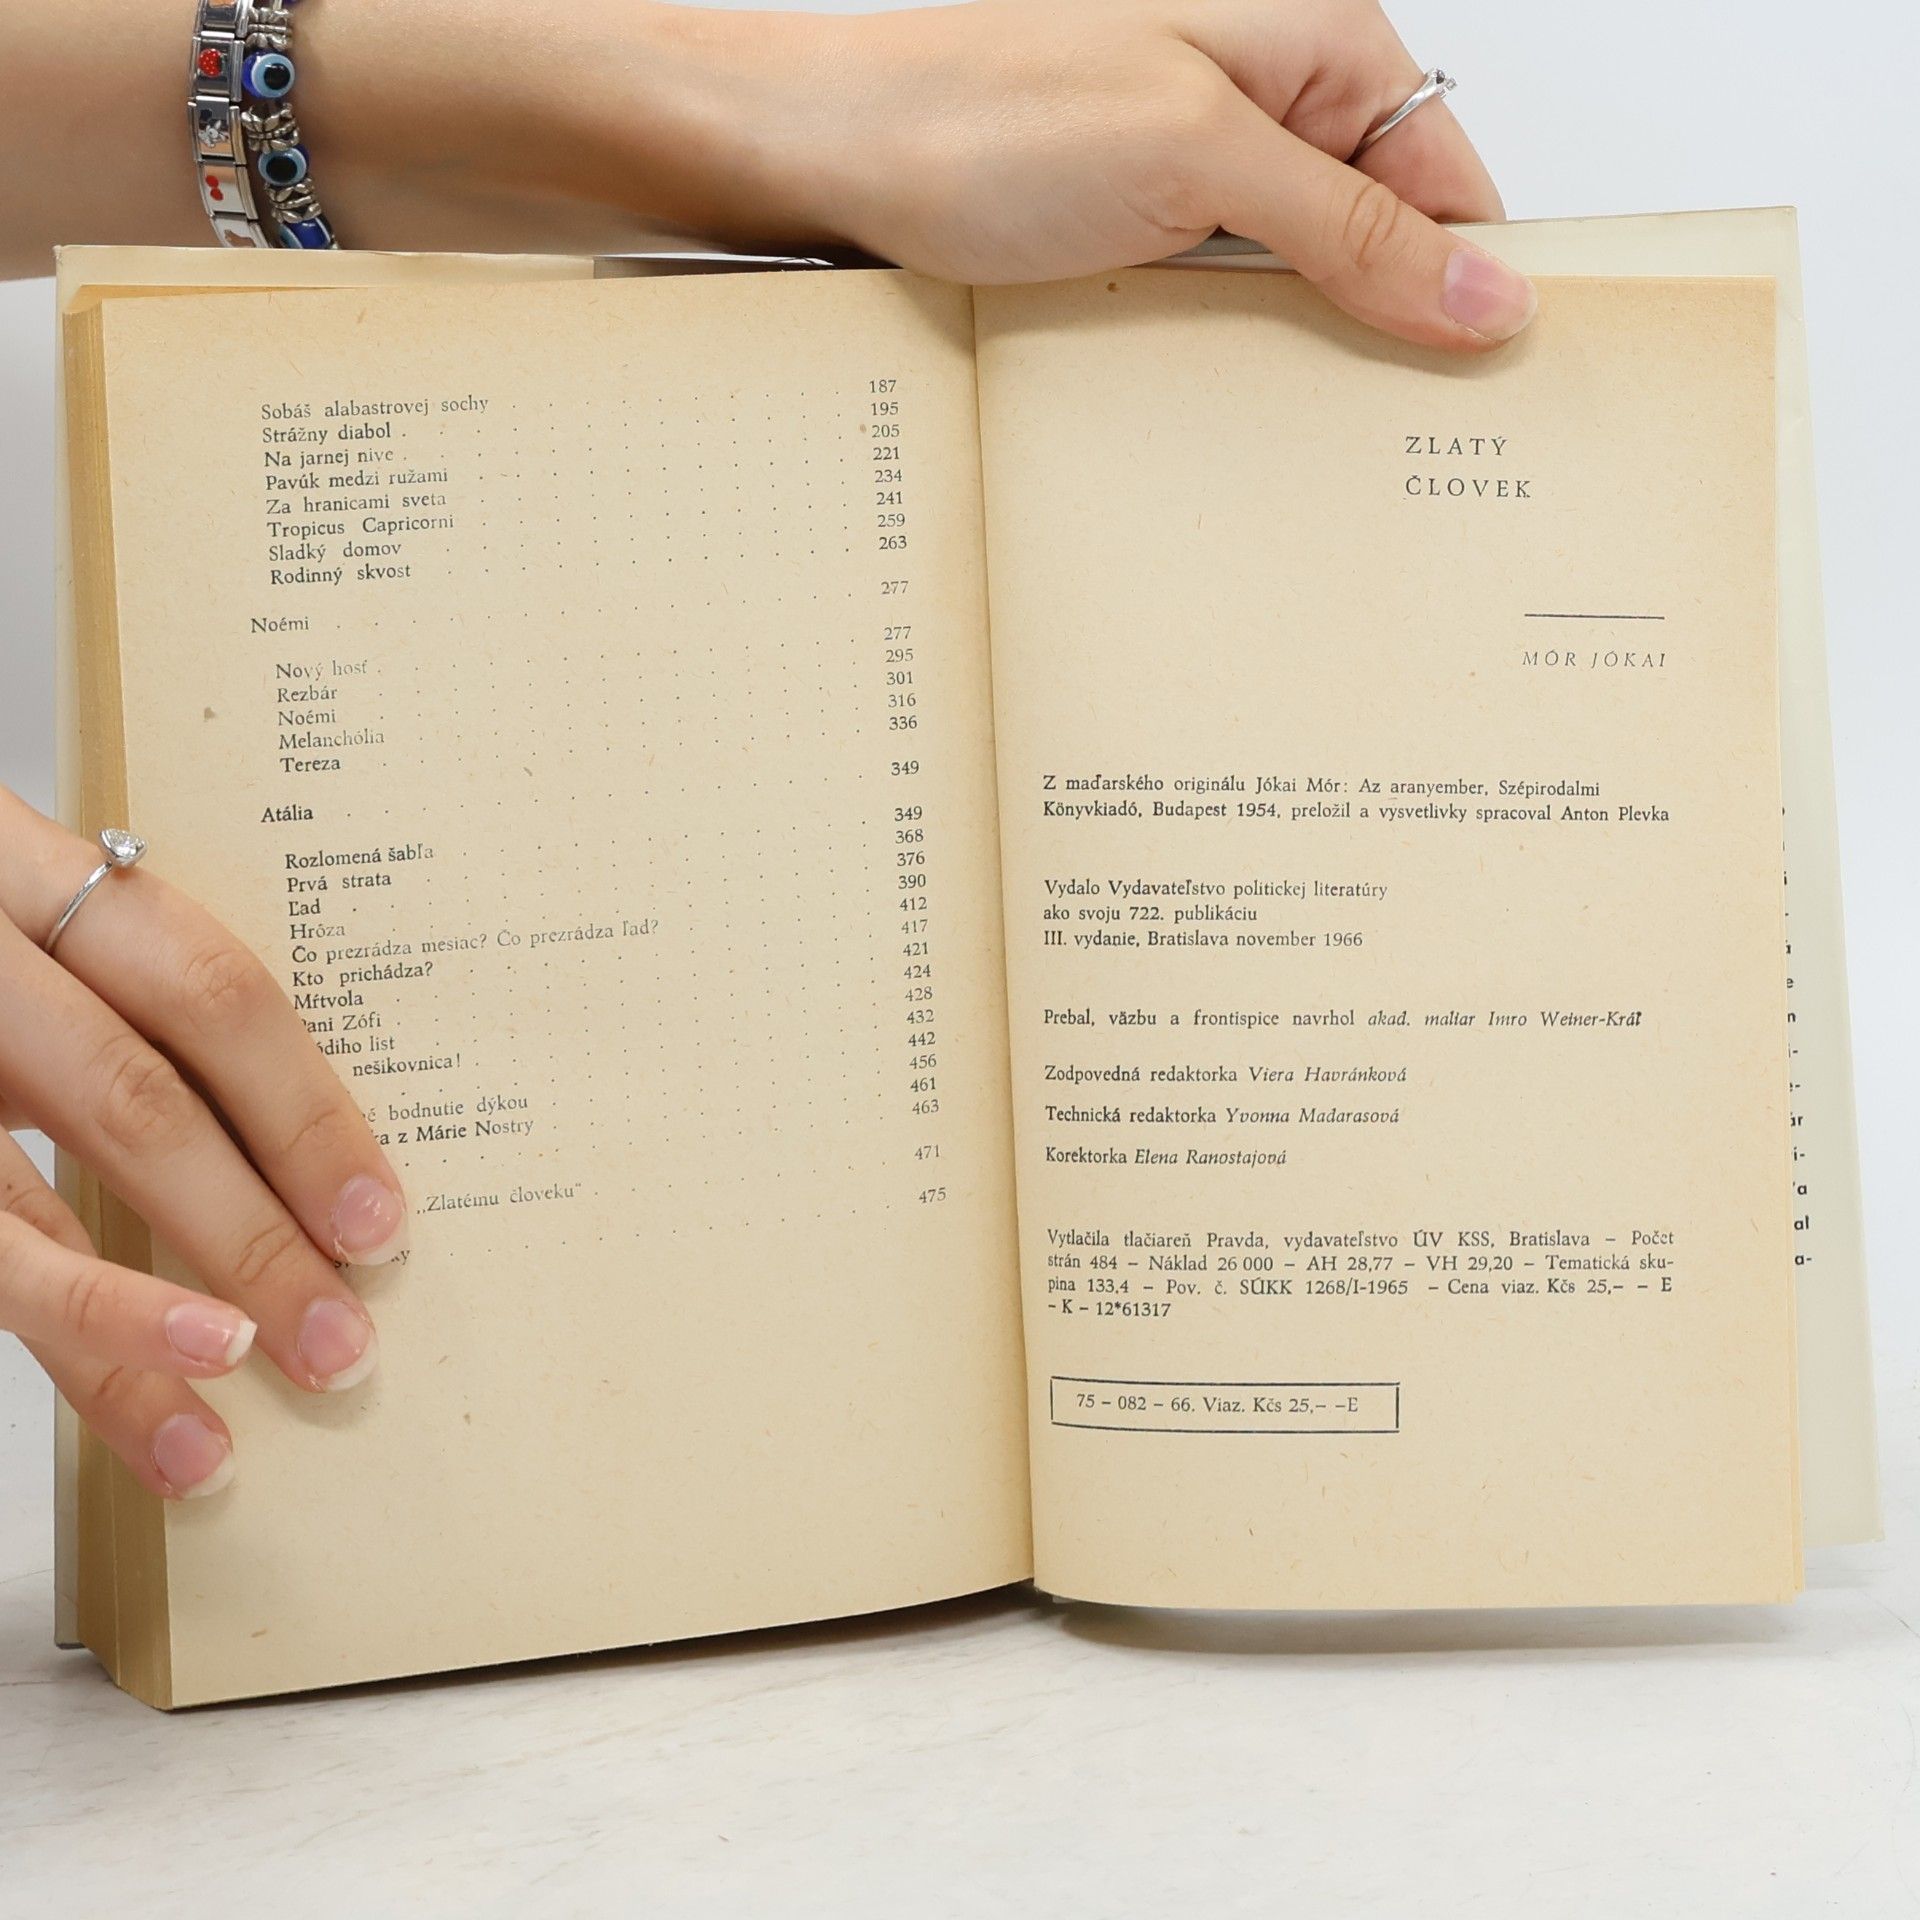 Sobáš alabastrovej sochy . . . . . . . 187
Strážny diabol . . . . . . . . . 195
Na jarnej nive . . . . . . . . . 205
Pavúk medzi ružami . . . . . . . 221
Za hranicami sveta . . . . . . . 234
Tropicus Capricorni . . . . . . . 241
Sladký domov . . . . . . . . 259
Rodinný skvost . . . . . . . . 263
Noémi . . . . . . . . . . 277
Nový hosť . . . . . . . . . 277
Rezbár . . . . . . . . . 295
Noémi . . . . . . . . . 301
Melanchólia . . . . . . . . 316
Tereza . . . . . . . . . 336
Atália . . . . . . . . . . 349
Rozlomená šabľa . . . . . . . 349
Prvá strata . . . . . . . . 368
Ľad . . . . . . . . . 376
Hróza . . . . . . . . . 390
Čo prezrádza mesiac? Čo prezrádza ľad? . . . . 412
Kto prichádza? . . . . . . . . 417
Mŕtvola . . . . . . . . . 421
Pani Zófi . . . . . . . . . 424
list . . . . . . . . 428
nešikovnica! . . . . . . . 432
442
bodnutie dýkou . . . . . . 456
z Márie Nostry . . . . . . 461
463
„Zlatému človeku“ . . . . . . 471
475
ZLATÝ
ČLOVEK
MÓR JÓKAI
Z maďarského originálu Jókai Mór: Az aranyember, Szépirodalmi
Könyvkiadó, Budapest 1954, preložil a vysvetlivky spracoval Anton Plevka
Vydalo Vydavateľstvo politickej literatúry
ako svoju 722. publikáciu
III. vydanie, Bratislava november 1966
Prebal, väzbu a frontispice navrhol akad. maliar Imro Weiner-Kráľ
Zodpovedná redaktorka Viera Havránková
Technická redaktorka Yvonna Maďarasová
Korektorka Elena Ranostajová
Vytlačila tlačiareň Pravda, vydavateľstvo ÚV KSS, Bratislava – Počet
strán 484 – Náklad 26 000 – AH 28,77 – VH 29,20 – Tematická sku-
pina 133,4 – Pov. č. SÚKK 1268/I-1965 – Cena viaz. Kčs 25,– – E
– K – 12*61317
75 – 082 – 66. Viaz. Kčs 25,– –E